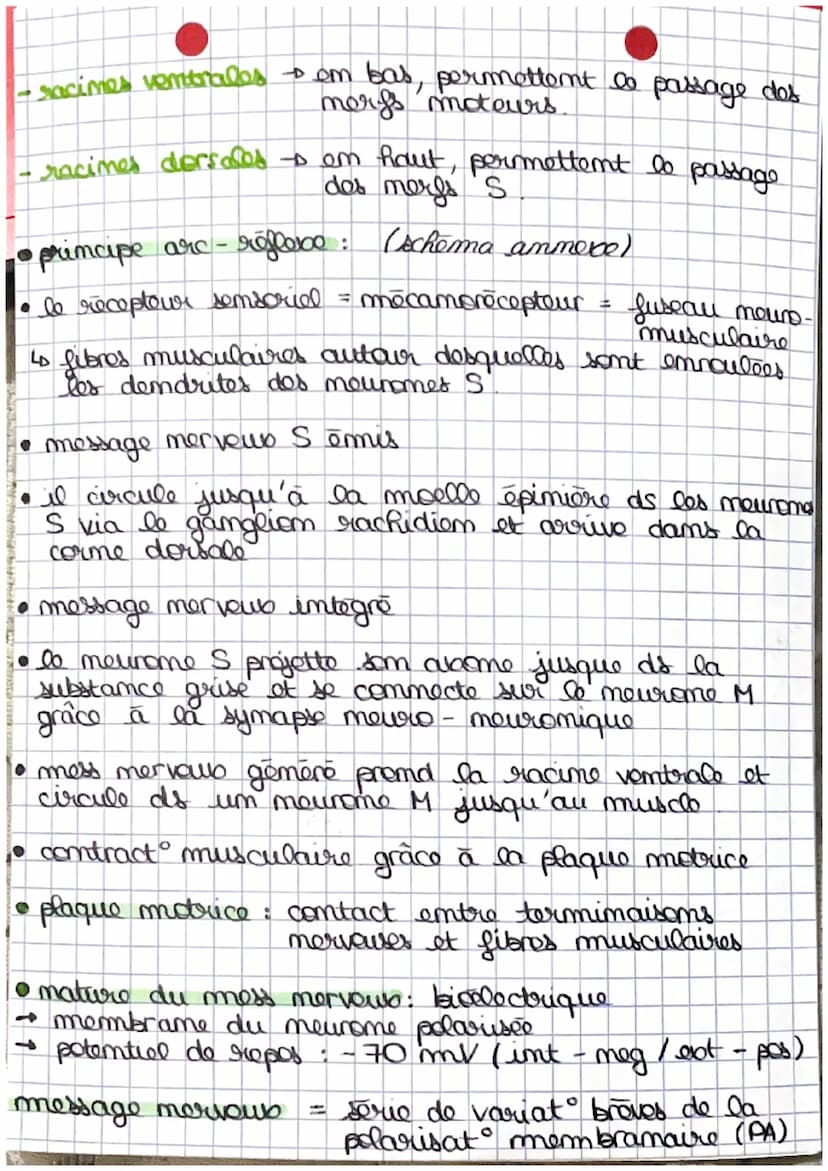 - racines ventrales → en bas, permettent le passage des
nerfs moteurs.
- racines dorsales → en haut, permettent le passage
des nerfs S.
• principe arc-réflexe : (schéma annexe)
• le récepteur sensoriel = mécanorécepteur = fuseau neuro-
musculaire
↳ fibres musculaires autour desquelles sont enroulées
les dendrites des neurones S.
• message nerveux S émis
• il circule jusqu'à la moelle épinière ds les neurones
S via le ganglion rachidien et arrive dans la
corne dorsale
• message nerveux intégré
• le neurone S projette son axone jusque ds la
substance grise et se connecte sur le neurone M
grâce à la synapse neuro-neuronique
• mess nerveux généré prend la racine ventrale et
circule ds un neurone M jusqu'au muscle
• contract° musculaire grâce à la plaque motrice
• plaque motrice : contact entre terminaisons
nerveuses et fibres musculaires
• nature du mess nerveux : bioélectrique
→ membrane du neurone polarisée
→ potentiel de repos : -70 mV (int - neg / ext - pos)
message nerveux = série de variat° brèves de la
polarisat° membranaire (PA)